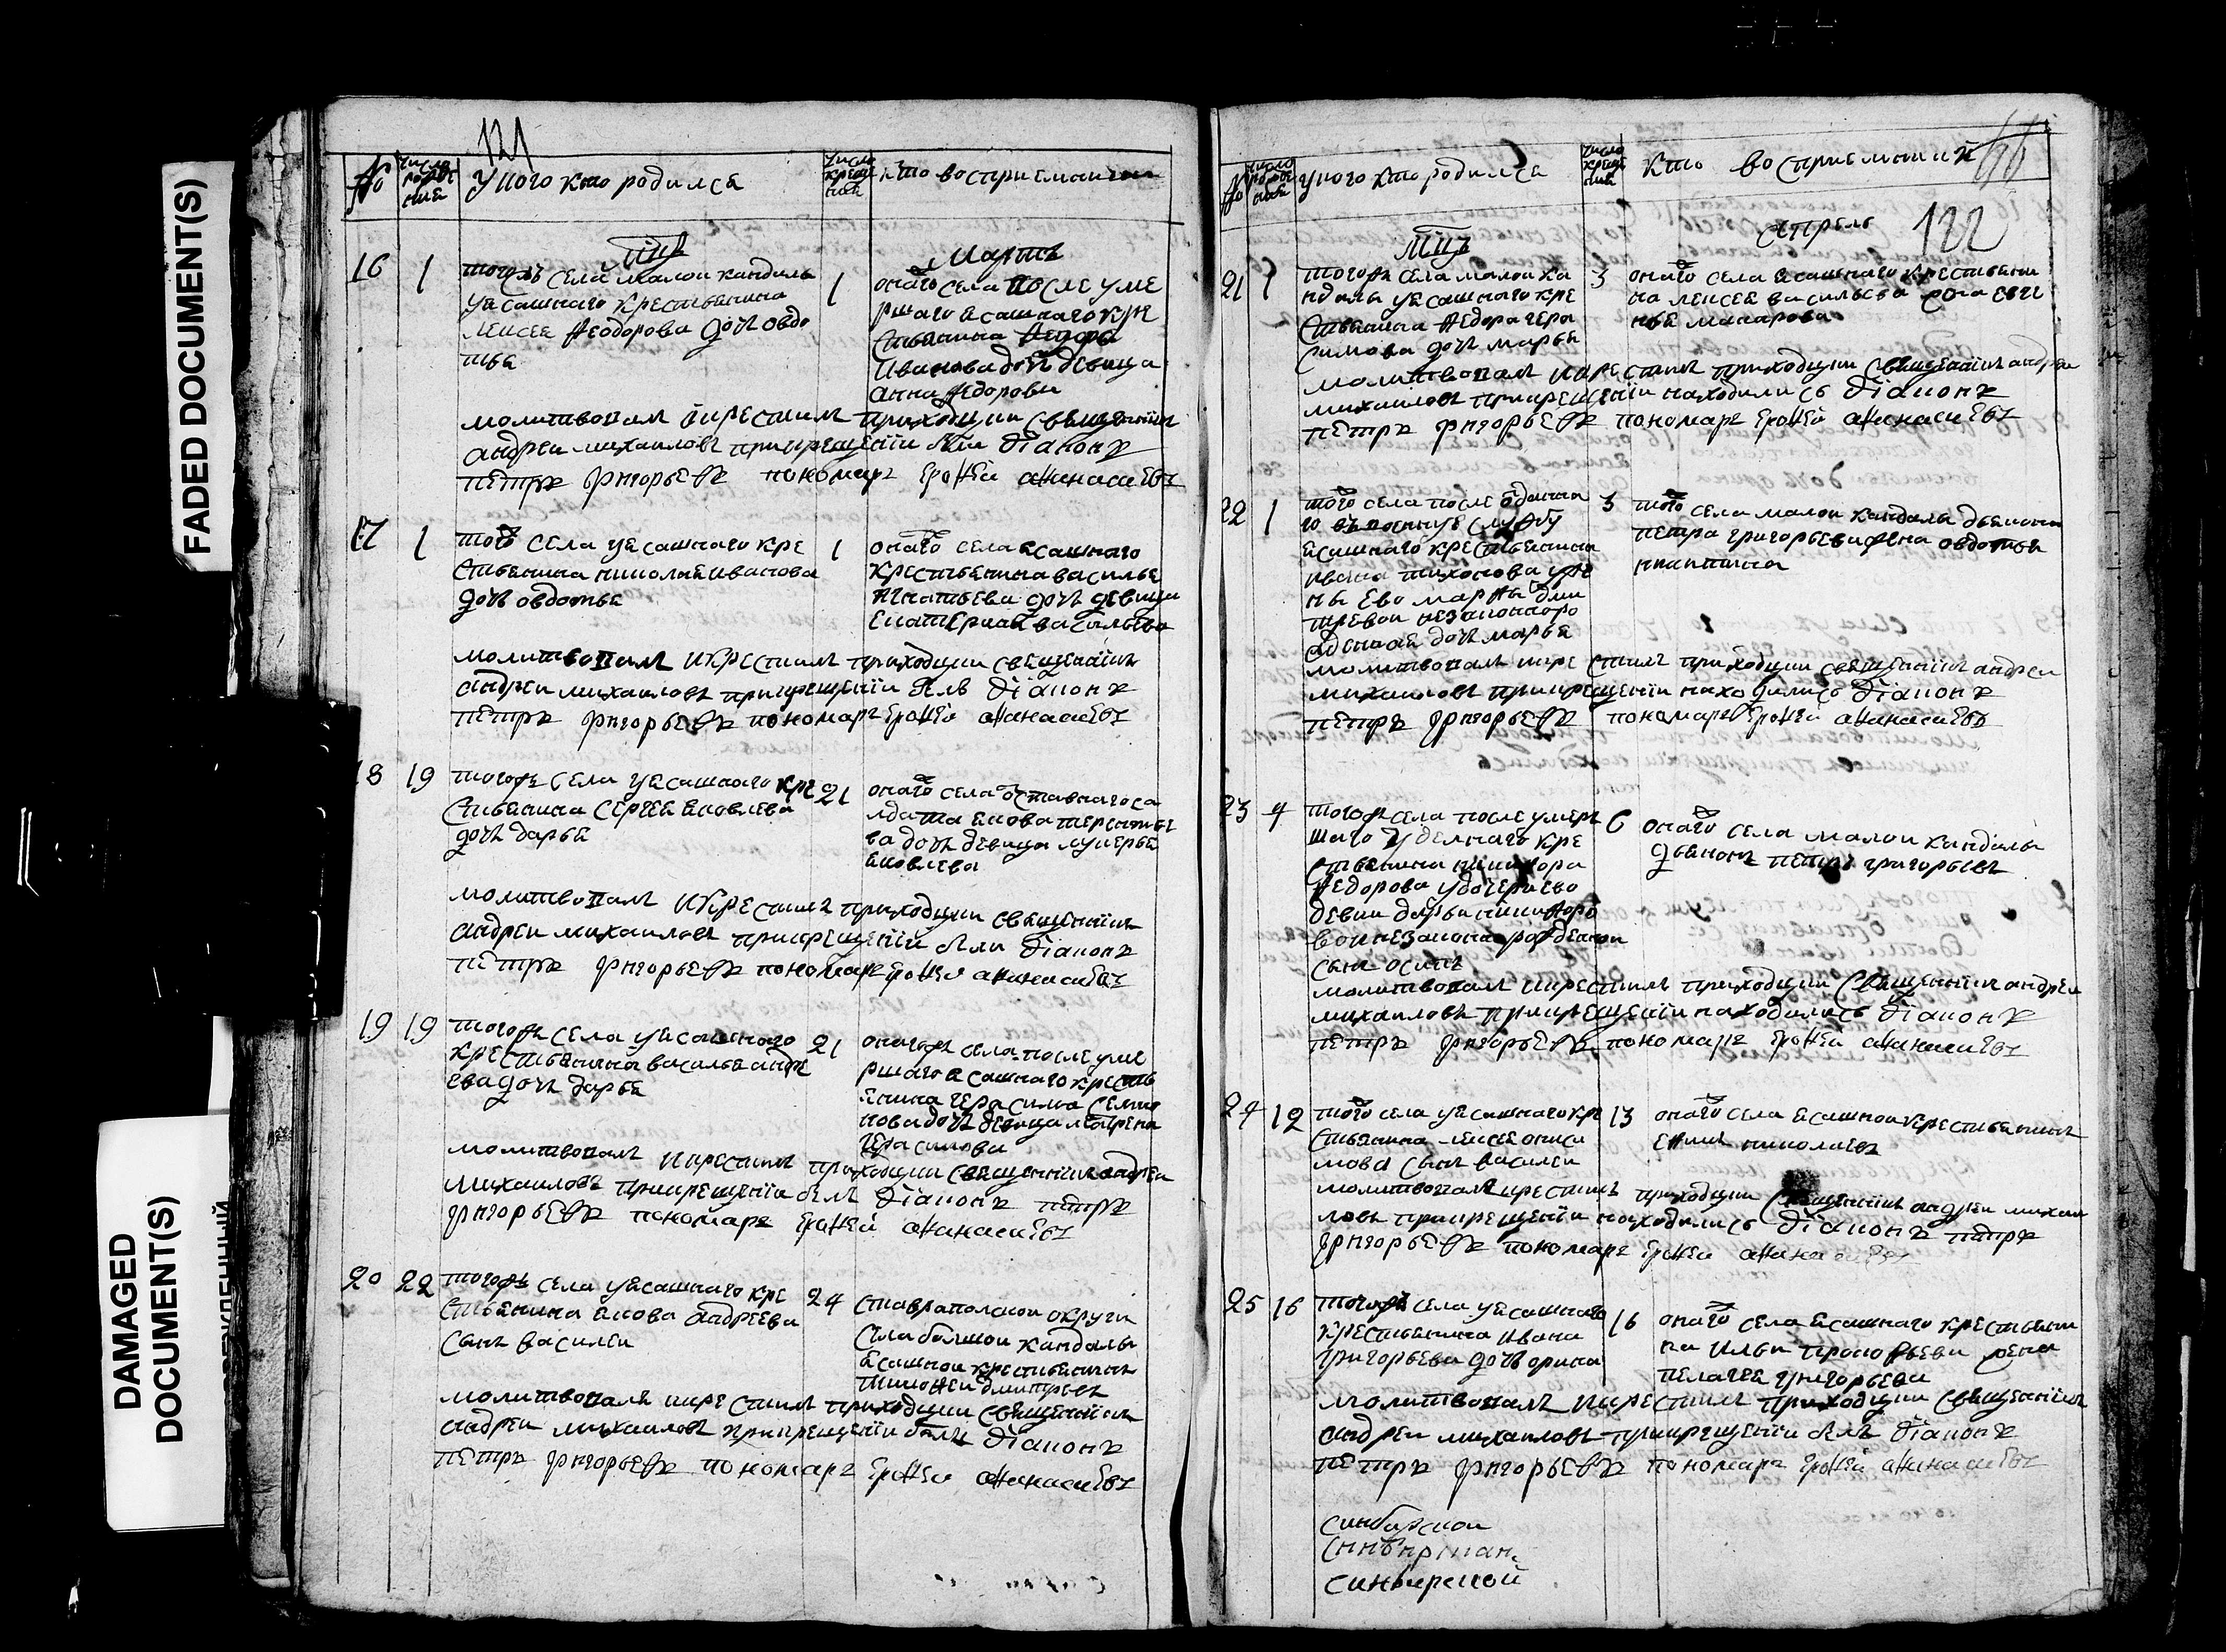 FADED DOCUMENT(S)
DAMAGED
DOCUMENT(S)
121
№
число рожде ния
У кого кто родился
число креще ния
кто восприемник
мцъ Мартъ
16 1
тогожъ села малои кандалы
у ясашнаго крестьянина
Алексея Ѳеодорова дочь овдо
тья
1
онаго села после уме
ршаго ясашнаго кре
стьянина
Иванова дочь девица
анна Ѳедорова
молитвовалъ и крестилъ приходции священникъ
андреи михаиловъ при крещении были діаконъ
петръ григорьевъ пономарь Ероѳей аѳанасьевъ
17 1
того села у ясашнаго кре
стьянина николая иванова
дочь овдотья
1
онаго села ясашнаго
крестьянина василья
игнатьева дочь девица
екатерина васильева
молитвовалъ и крестилъ приходции священникъ
андреи михаиловъ при крещении былъ діаконъ
петръ григорьевъ пономарь Ероѳей аѳанасьевъ
18 19
тогожъ села у ясашнаго кре
стьянина Сергея яковлева
дочь дарья
21
онаго села отставнаго са
лдата якова терентье
ва дочь девица лукерья
яковлева
молитвовалъ и крестилъ приходции священникъ
андреи михаиловъ при крещении были діаконъ
петръ григорьевъ пономарь Ероѳей аѳанасьевъ
19 19
тогожъ села у ясашнаго
крестьянина василья андре
ева дочь дарья
21
оногожъ села после уме
ршаго ясашнаго кресть
янина герасима семио
нова дочь девица матрена
герасимова
молитвовалъ и крестилъ приходции священникъ андреи
михаиловъ при крещении былъ діаконъ петръ
григорьевъ пономарь Ероѳей аѳанасьевъ
20 22
тогожъ села у ясашнаго кре
стьянина якова андреева
сынъ василеи
24
ставрапольскои округи
села большои кандалы
ясашнои крестьянинъ
тимоѳеи дмитрьевъ
молитвовалъ и крестилъ приходции священникъ
андреи михаиловъ при крещении были діаконъ
петръ григорьевъ пономарь Ероѳей аѳанасьевъ
№
число рожде ния
у кого кто родился
число креще ния
кто восприемникъ
мцъ апрель 122
21 1
тогожъ села малои ка
ндалы у ясашнаго кре
стьянина Ѳедора гера
симова дочь марья
3
онаго села ясашнаго крестьяни
на алексея васильева жена евге
нья макарова
молитвовалъ и крестилъ приходции священникъ андреи
михаиловъ при крещении находились діаконъ
петръ григорьевъ пономарь Ероѳей аѳанасьевъ
22 1
того села после отданна
го въ военную службу
ясашнаго крестьянина
ивана тихонова у же
ны ево марѳы дми
тревои незаконноро
жденная дочь марья
3
того села малои кандалы дьякона
петра григорьева жена овдотья
никитина
молитвовалъ и крестилъ приходции священникъ андреи
михаиловъ при крещении находились діаконъ
петръ григорьевъ пономарь Ероѳей аѳанасьевъ
23 4
тогожъ села после умер
шаго удельнаго кре
стьянина никиѳора
Ѳедорова у дочери ево
девки дарьи никиѳоро
вои незаконорожденои
сынъ осипъ
6
онаго села малои кандалы
дьяконъ петръ григорьевъ
молитвовалъ и крестилъ приходции священникъ андреи
михаиловъ при крещении находились діаконъ
петръ григорьевъ пономарь Ероѳей аѳанасьевъ
24 12
того села у ясашнаго кре
стьянина алексея ониси
мова сынъ василеи
13
онаго села ясашнои крестьянинъ
еѳимъ николаевъ
молитвовалъ крестилъ приходции священникъ андреи михаи
ловъ при крещении находились діаконъ петръ
григорьевъ пономарь Ероѳей аѳанасьевъ
25 16
тогожъ села у ясашнаго
крестьянина Ивана
григорьева дочь орина
16
онаго села ясашнаго крестьяни
на Ильи прокоѳьева жена
пелагея григорьева
молитвовалъ и крестилъ приходции священникъ
андреи михаиловъ при крещении былъ діаконъ
петръ григорьевъ пономарь Ероѳей аѳанасьевъ
синбирскои
синбирскои